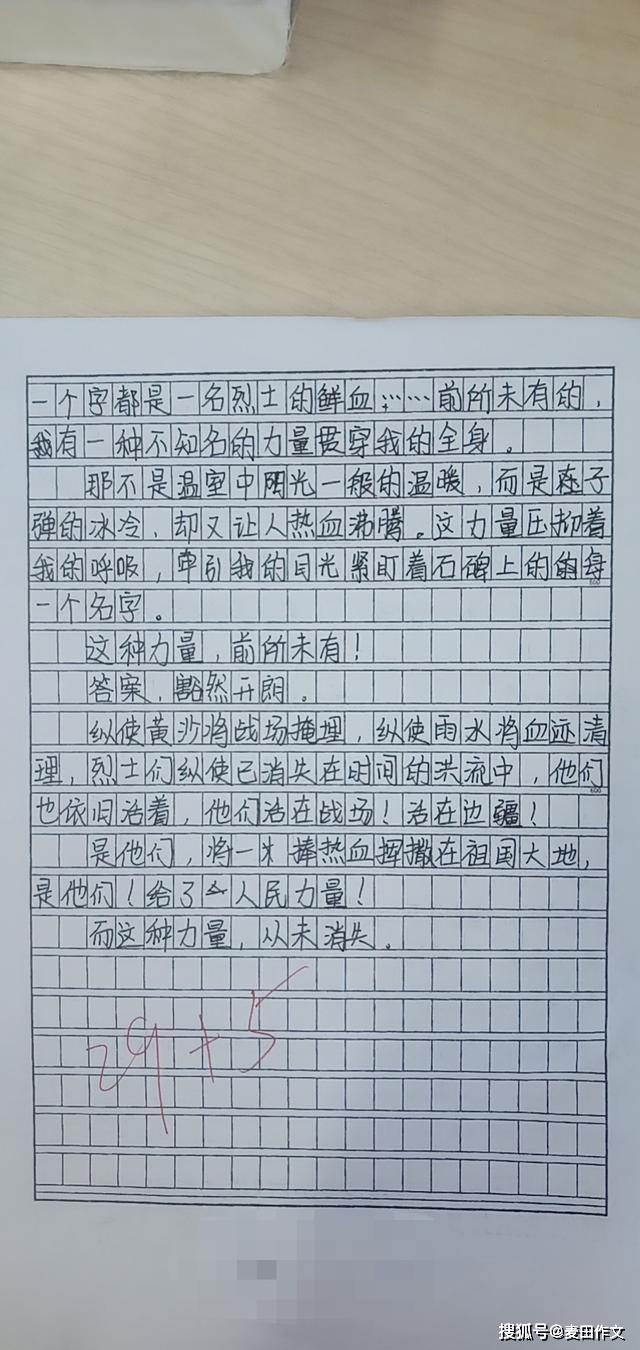 一个字都是一名烈士的鲜血……前所未有的，
我有一种不知名的力量贯穿我的全身。
那不是温室中阳光一般的温暖，而是在子
弹的冰冷，却又让人热血沸腾。这力量压抑着
我的呼吸，牵引我的目光紧盯着石碑上的每
800
一个名字。
这种力量，前所未有！
答案，豁然开朗。
纵使黄沙将战场掩埋，纵使雨水将血迹清
理，烈士们纵使已消失在时间的洪流中，他们
600
也依旧活着，他们活在战场！活在边疆！
是他们，将一捧热血挥撒在祖国大地，
是他们！给了人民力量！
而这种力量，从未消失。
29+5
搜狐号@麦田作文